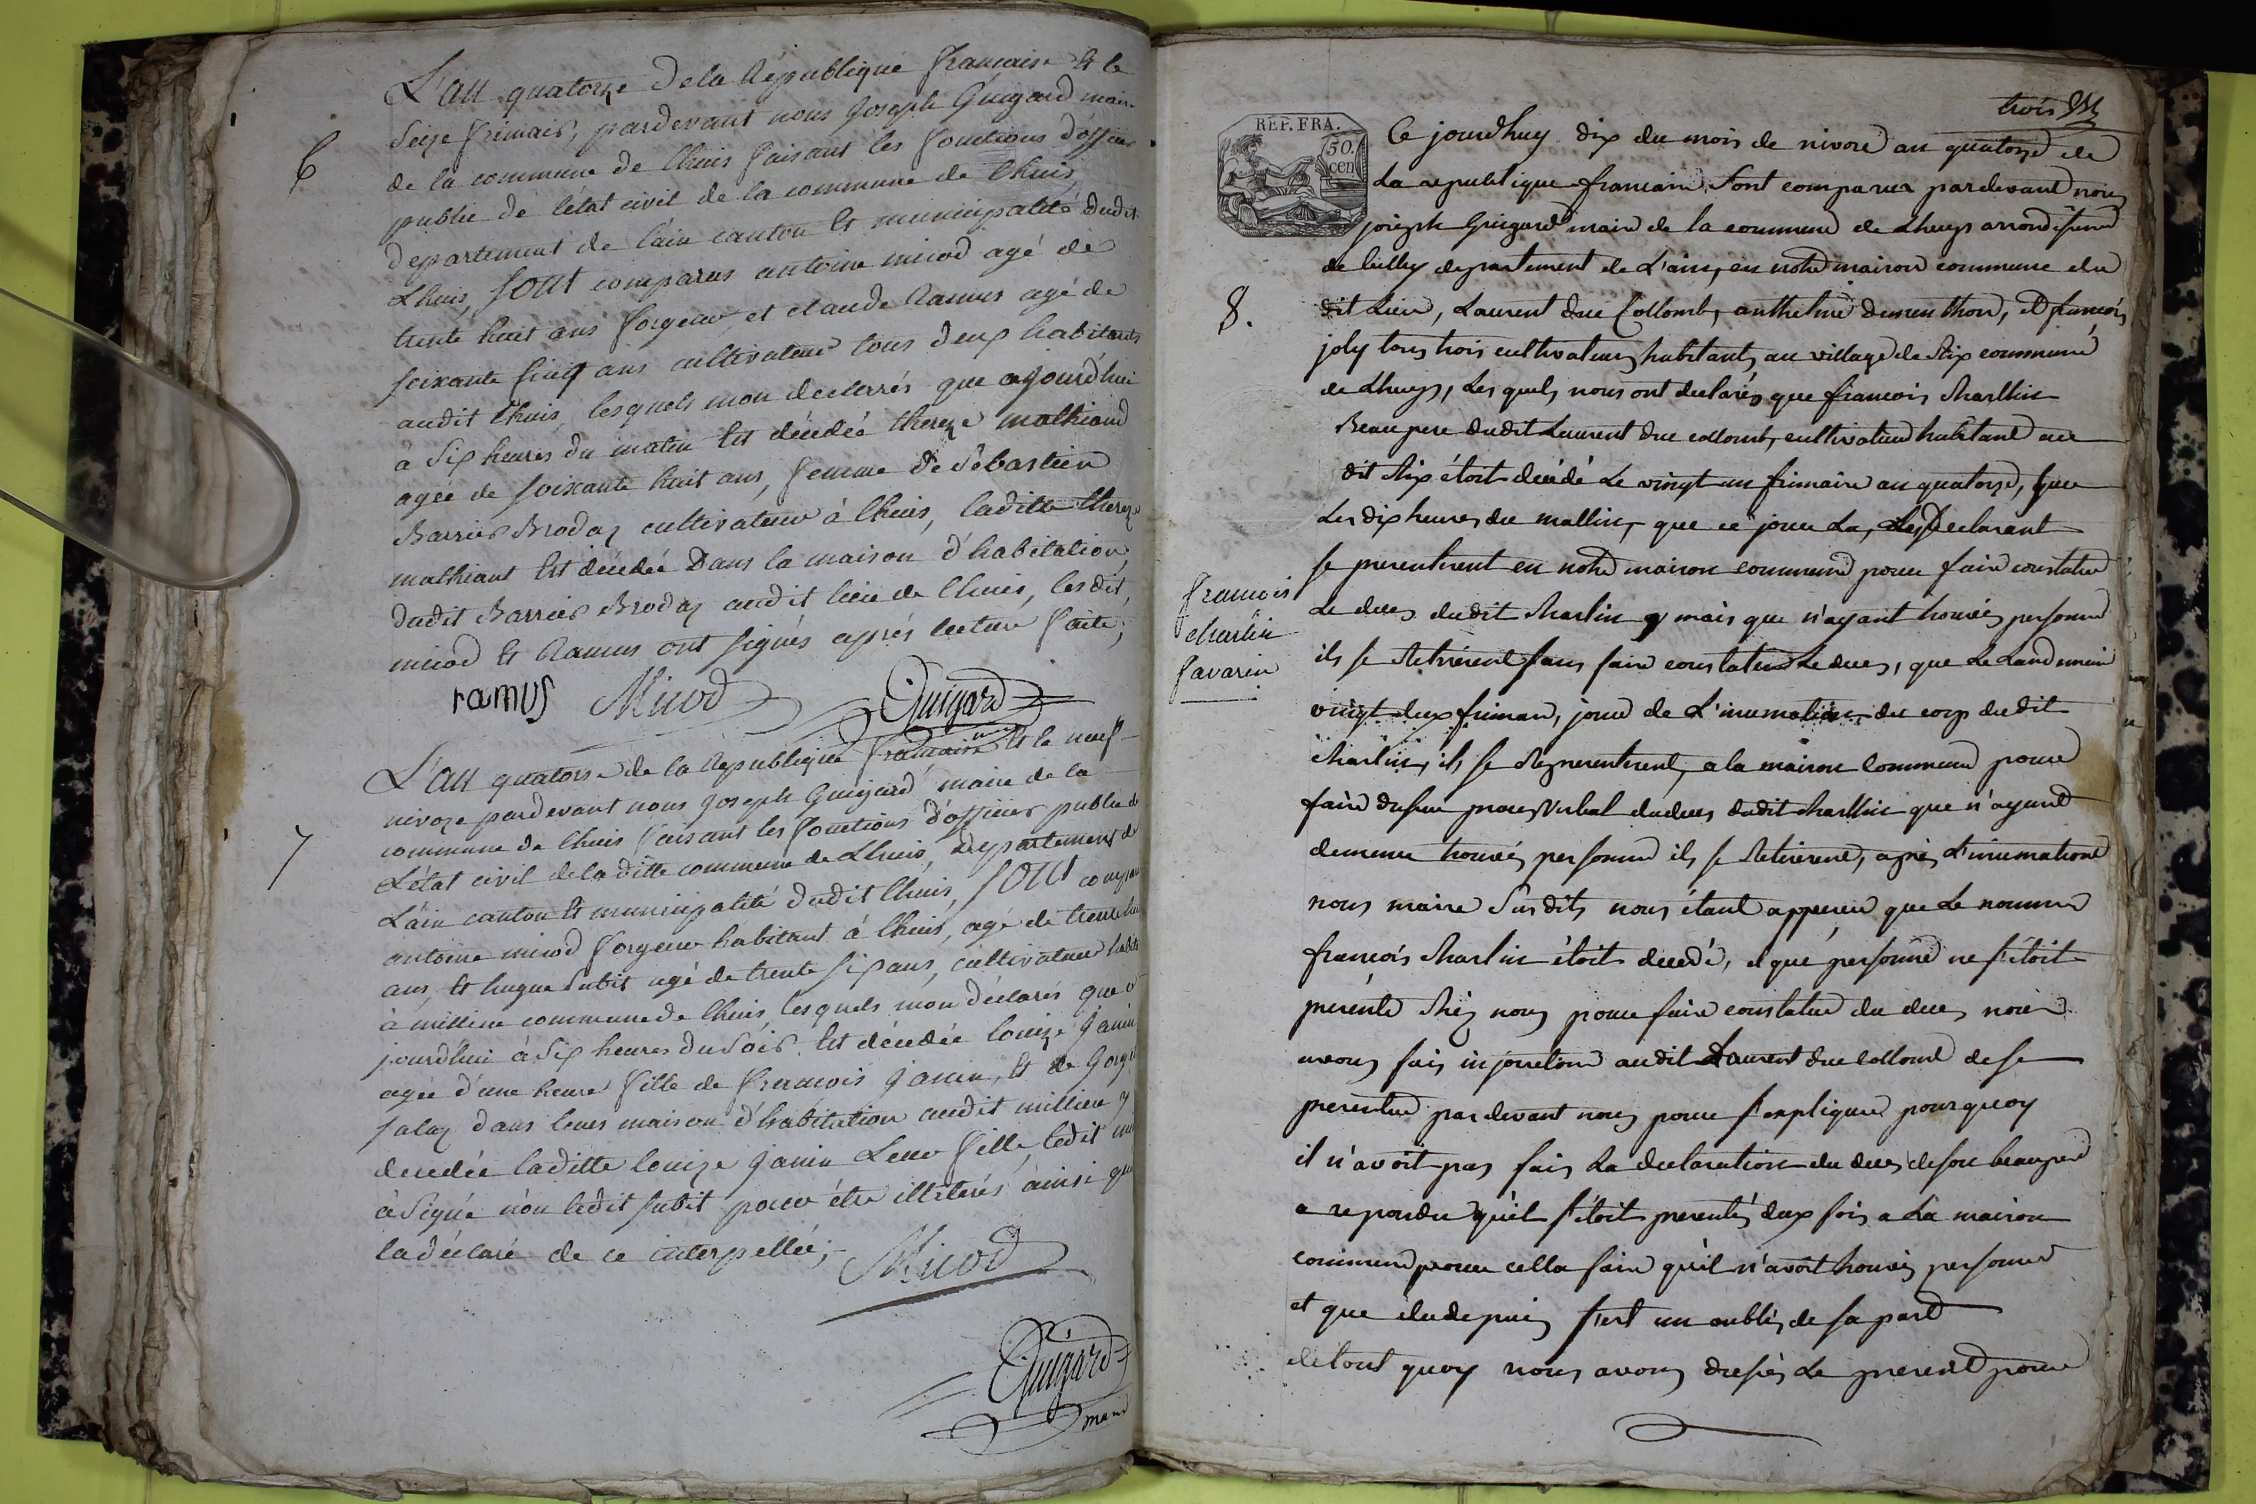 L'an quatorze de la République française Et le
Seize frimais, pardevant nous Joseph Guigard maire
6
de la commune de lhuis faisant les fonctions d'officier
public de l'état civil de la commune de lhuis,
departement de l'ain canton Et municipalité dudit
Lhuis, sont comparus antoine micod agé de
trente huit ans forgeur et claude Ramus agé de
soixante Cinq ans cultivateur tous deux habitants
audit lhuis, lesquels mon declerrés que ajourd'hui
à Six heures du matin Est décédée thereze mathiand
agée de soixante huit ans, femme de Sébastien
Barrier Brodaz cultivateur à lhuis, laditte thereze
mathiant Est décédée Dans la maison d'habitation
dudit Barrier Brodaz audit lieu de lhuis, lesdit,
micod Et Ramus ont signés aprés lecture faite,
ramus Micod Guigard
maire
L'an quatorse de la République francaise Et le neuf
nivoze pardevant nous Joseph Guigard maire de la
7
commune de lhuis faisant les fonctions d'officier public de
L'état civil de laditte commune de Lhuis, Département de
L'ain canton Et municipalité dudit lhuis, sont comparus
antoine micod forgeur habitant à lhuis, agé de trente huit
ans, Et hugue Subit agé de trente six ans, cultivateur
à millieu commune de lhuis, lesquels mon déclarés que
jourd'hui à Six heures du Soir Est décédée louize Janin
agée d'une heure fille de francois Janin, Et de
dans leurs maison d'habitation audit millieu
decedée laditte louize Janin Leur fille, ledit
à Signé non ledit Subit pour étre illiterés ainsi que
la déclaré de ce interpellée;
Micod
Guigard
maire
trois
REP. FRA.
50.
cen
Ce jourdhuy dix du mois de nivose an quatorze de
La republique francaise sont comparus pardevant nous
joseph Guigard maire de la commune de Lhuys arrondissement
de belley departement de L'ain, en notre maison commune du
8.
dit Lieu, Laurent duc Collomb, anthelme dementhon, et francois
joly tous trois cultivateurs habitants au village de Rix commune
de Lhuys, Les quels nous ont declarés que francois Charllin
Beau pere dudit Laurent duc collomb, cultivateur habitant au
dit Rix étoit décédé Le vingt un frimaire an quatorze, sur
Les dix heures du mattin, que ce jour La, Les Declarant
se presenterent en notre maison commune pour faire constater
francois
charlin
favarin
Le deces dudit Charlin mais que n'ayant trouvés personne
ils se Retirérent sans faire constater Le deces, que Le Landemain
vingt deux frimaire, jour de L'inumation du corp dudit
charlin, ils se Representerent, a la maison Commune pour
faire dresser proces Verbal du deces dudit charllin que n'ayant
dememe trouvés personne ils se Retirerent, après L'inumationt
nous maire Sus dits nous étant apperçu que Le nommé
francois Charlin étoit decedé, et que personne ne s'étoit
présenté Chéz nous pour faire constater du deces, nous
avons fais injonction audit Laurent duc Collomb de se
presenter par devant nous pour s'expliquer pourquoy
il n'avoit pas fais La declaration du deces de son beaupere
a repondu qu'il s'étoit presentés deux fois a La maison
commune pour cella faire qu'il n'avoit trouvés personne
et que dudepuis s'est un oublis de sa part
de tout quoy nous avons dressés Le present pour